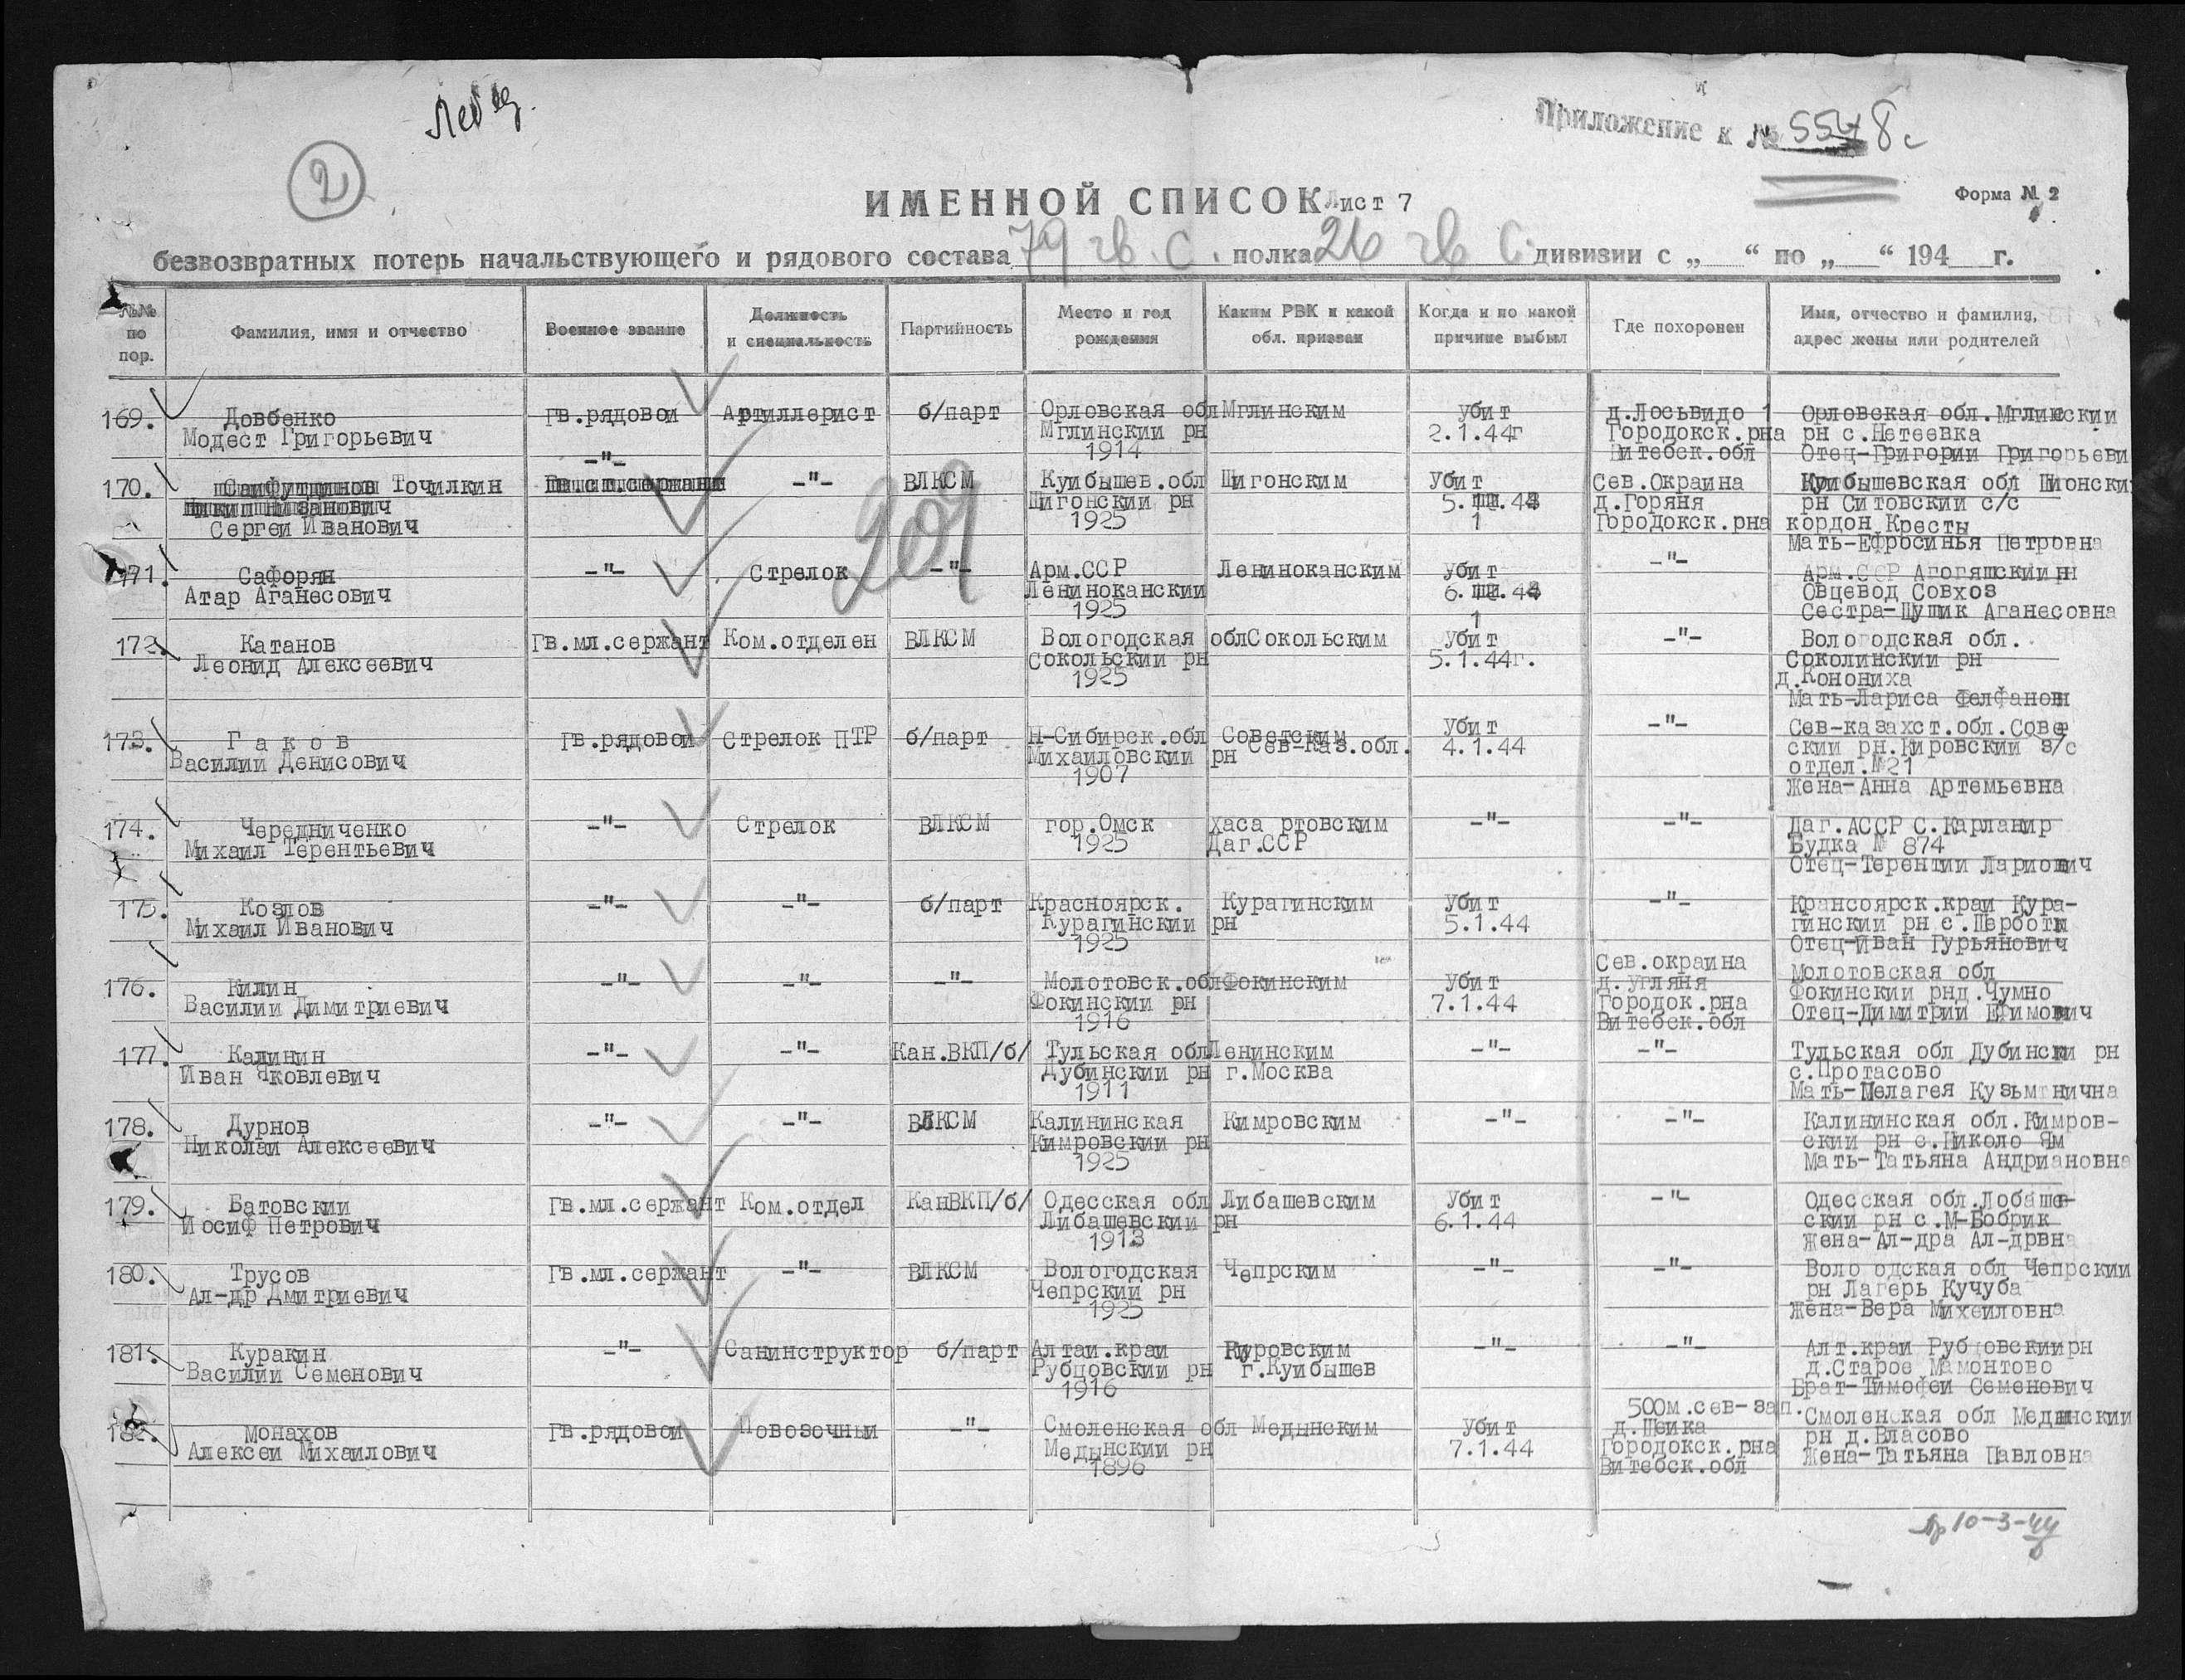 Приложение к № 5548с
2
ИМЕННОЙ СПИСОК Лист 7
Форма № 2
безвозвратных потерь начальствующего и рядового состава 79 гв. С. полка 26 гв С. дивизии с „ “ по „ “ 194 г.
№№ по пор. Фамилия, имя и отчество Военное звание Должность и специальность Партийность Место и год рождения Каким РВК и какой обл. призван Когда и по какой причине выбыл Где похоронен Имя, отчество и фамилия, адрес жены или родителей
169. Довбенко гв.рядовои Артиллерист б/парт Орловская обл Мглинским убит д.Лосьвидо 1 Орловская обл.Мглинскии
Модест Григорьевич Мглинскии рн 2.1.44г Городокск.рна рн с.Нетеевка
1914 Витебск.обл Отец-Григории Григорьеви
-"-
170. Точилкин -"- ВЛКСМ Куибышев.обл Шигонским Убит Сев.Окраина Куибышевская обл Шионски
Шигонскии рн 5. .44 д.Горяня рн Ситовскии с/с
Сергеи Иванович 1925 1 Городокск.рна кордон Кресты
Мать-Ефросинья Петровна
171. Сафорян -"- Стрелок -"- Арм.ССР Лениноканским убит -"- Арм.ССР Агогяшскии рн
Атар Аганесович Лениноканскии 6. .44 Овцевод Совхоз
1925 1 Сестра-Шушик Аганесовна
172. Катанов Гв.мл.сержант Ком.отделен ВЛКСМ Вологодская обл Сокольским убит -"- Вологодская обл.
Леонид Алексеевич Сокольскии рн 5.1.44г. Соколинскии рн
1925 д.Конониха
Мать-Лариса Фелфановн
173. Гаков Гв.рядовои Стрелок ПТР б/парт Н-Сибирск.обл Советским убит -"- Сев-казахст.обл.Сове
Василии Денисович Михаиловскии рн Сев-Каз.обл. 4.1.44 скии рн.Кировскии з/с
1907 отдел.№21
Жена-Анна Артемьевна
174. Чередниченко -"- Стрелок ВЛКСМ гор.Омск Хаса ртовским -"- -"- Даг.АССР С.Карланир
Михаил Терентьевич 1925 Даг.ССР Будка № 874
Отец-Терентии Ларионвич
175. Козлов -"- -"- б/парт Красноярск. Курагинским убит -"- Крансоярск.краи Кура-
Михаил Иванович Курагинскии рн 5.1.44 гинскии рн с.Шерботы
1925 Отец-Иван Гурьянович
Сев.окраина
176. Килин -"- -"- -"- Молотовск.обл Фокинским убит д.угляня Молотовская обл
Василии Димитриевич Фокинскии рн 7.1.44 Городок.рна Фокинскии рнд.Чумно
1916 Витебск.обл Отец-Димитрии Ефимович
177. Калинин -"- -"- Кан.ВКП/б/ Тульская обл Ленинским -"- -"- Тульская обл Дубински рн
Иван Яковлевич Дубинскии рн г.Москва с.Протасово
1911 Мать-Пелагея Кузьмтнична
178. Дурнов -"- -"- ВЛКСМ Калининская Кимровским -"- -"- Калининская обл.Кимров-
Николаи Алексеевич Кимровскии рн скии рн с.Николо Ям
1925 Мать-Татьяна Андриановна
179. Батовскии Гв.мл.сержант Ком.отдел КанВКП/б/ Одесская обл Либашевским убит -"- Одесская обл.Лобаше-
Иосиф Петрович Либашевскии рн 6.1.44 скии рн с.М-Бобрик
1913 Жена-Ал-дра Ал-дрвн
180. Трусов Гв.мл.сержант -"- ВЛКСМ Вологодская Чепрским -"- -"- Воло одская обл Чепрскии
Ал-др Дмитриевич Чепрскии рн рн Лагерь Кучуба
1925 Жена-Вера Михеиловна
181. Куракин -"- Санинструктор б/парт Алтаи.краи Кировским -"- -"- Алт.краи Рубцовскиирн
Василии Семенович Рубцовскии рн г.Куибышев д.Старое Мамонтово
1916 Брат-Тимофеи Семенович
500м.сев-зап.
182. Монахов Гв.рядовои Повозочныи -"- Смоленская обл Медынским убит д.Шеика Смоленская обл Медынскии
Алексеи Михаилович Медынскии рн 7.1.44 Городокск.рна рн д.Власово
1896 Витебск.обл Жена-Татьяна Павловна
209
10-3-44